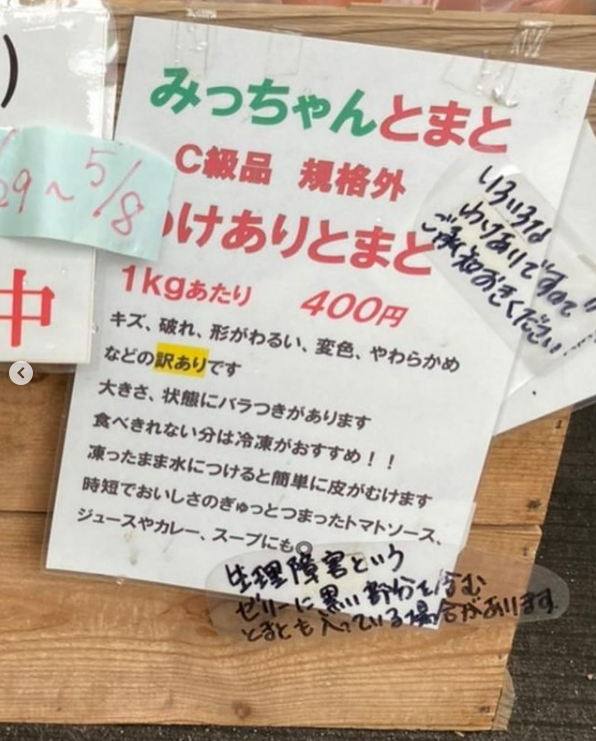 )
29〜5/8
中
みっちゃんとまと
C級品 規格外
けありとまと
1kgあたり 400円
キズ、破れ、形がわるい、変色、やわらかめ
などの訳ありです
大きさ、状態にバラつきがあります
食べきれない分は冷凍がおすすめ!!
凍ったまま水につけると簡単に皮がむけます
時短でおいしさのぎゅっとつまったトマトソース、
ジュースやカレー、スープにも
いろいろな
わけありですので
ご承知おきください
生理障害という
ゼリーに黒い部分を含む
とまとも入っている場合があります